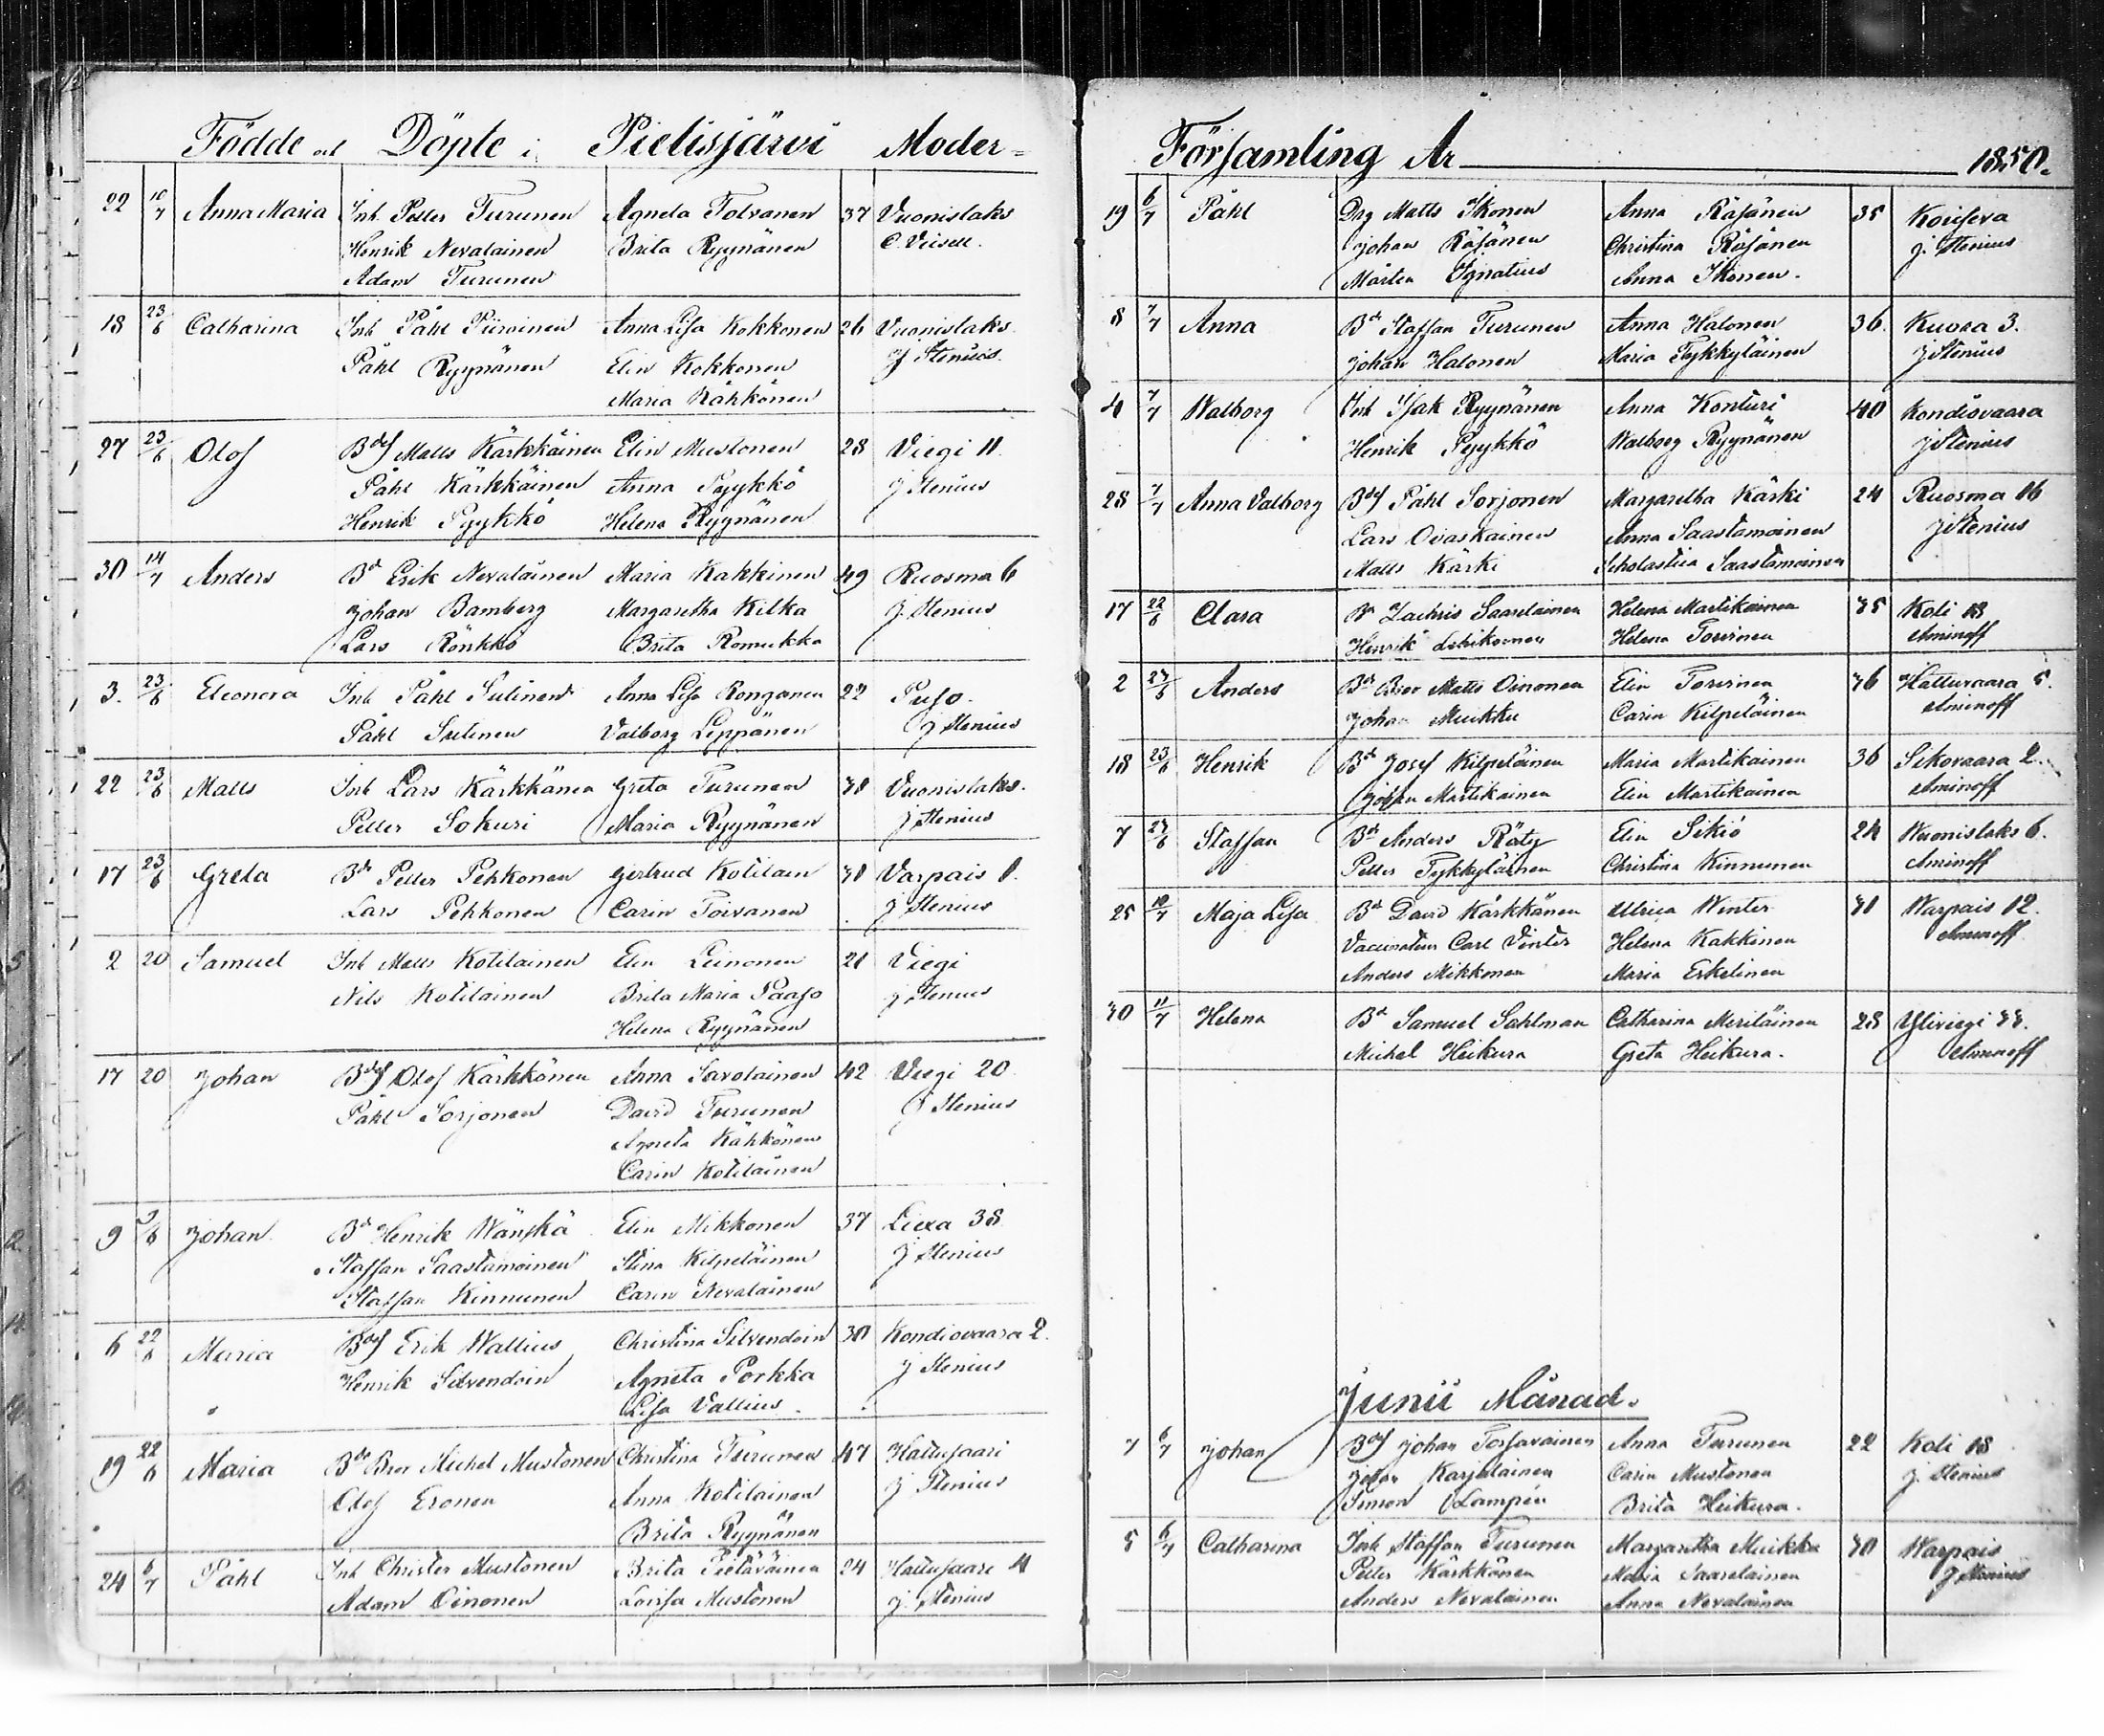 Födde och Döpte i Pielisjärvi Moder=
22 10/7 Anna Maria Inh. Petter Turunen Agneta Tolvanen 37 Vuonislaks
Henrik Nevalainen Brita Ryynänen
Adam Turunen
18 23/6 Catharina Inh Påhl Piiroinen Anna Lisa Kokkonen 26 Vuonislaks
Påhl Ryynänen Elin Kokkonen J Stenius
Maria Kähkönen
27 23/6 Olof Bdsf Matts Kärkkäinen Elin Mustonen 28 Viegi 11.
Påhl Kärkkäinen Anna Pyykkö J Stenius
Henrik Pyykkö Helena Ryynänen
30 14/7 Anders Bd Erik Nevalainen Maria Kakkinen 49 Ruosma 6
Johan Bamberg Margaretha Kilka J. Stenius
Lars Rönkkö Brita Romukka
3. 23/6 Eleonora Inh Påhl Sutinen Anna Lisa Ronganen 22 Puso.
Påhl Sutinen Valborg Leppänen J Stenius
22 23/6 Matts Inh Lars Kärkkänen Greta Turunen 30 Vuonislaks.
Petter Sokuri Maria Ryynänen J Stenius
17 23/6 Greta Bd Petter Pehkonen Gertrud Kotilain 30 Varpais 8.
Lars Pehkonen Carin Toivanen J Stenius
2 20 Samuel Inh Matts Kotilainen Elin Leinonen 21 Viegi
Nils Kotilainen Brita Maria Paaso J Stenius
Helena Ryynänen
17 20 Johan Bdsf Olof Kärkkönen Anna Savolainen 42 Viegi 20
Påhl Sorjonen David Turunen J Stenius
Agneta Kähkönen
Carin Kotilainen
9 3/6 Johan Bd Henrik Wänskä Elin Mikkonen 37 Liexa 38
Staffan Saastamoinen Stina Kilpeläinen J Stenius
Staffan Kinnunen Carin Nevalainen
6 22/6 Maria Bdsf Erik Wallius Christina Silvendoin 30 Kondiovaara 2.
Henrik Silvendoin Agneta Porkka J Stenius
Lisa Vallius
19 22/6 Maria Bds Bror Michel Mustonen Christina Turunen 47 Hattusaari
Olof Eronen Anna Kotilainen J Stenius
Brita Ryynänen
24 6/7 Påhl Inh Christer Mustonen Brita Pietäväinen 24 Hattusaari 4
Adam Oinonen Lovisa Mustonen J. Stenius
Församling År 1850.
19 6/7 Påhl Drg Matts Ikonen Anna Räsänen 35 Koisseva
Johan Räsänen Christina Räsänen J. Stenius
Mårten Ignatius Anna Ikonen.
8 7/7 Anna Bd Staffan Turunen Anna Halonen 36. Kuora 3.
Johan Halonen Maria Tykkyläinen J Stenius
4 7/7 Walborg Inh Isak Ryynänen Anna Konturi 40 Kondiovaara
Henrik Pyykkö Walborg Ryynänen J Stenius
28 7/7 Anna Valborg Bdsf Påhl Sorjonen Margaretha Kärki 24 Ruosma 16
Lars Oivaskainen Anna Saastamoinen J Stenius
Matts Kärki Scholastica Saastamoinen
17 22/6 Clara Bd Zachris Saarelainen Helena Martikainen 35 Koli 13
Henrik Lehikoinen Helena Torvinen Aminoff
2 27/6 Anders Bds Bror Matts Oinonen Elin Torvinen 36 Hattuvaara 5.
Johan Muikku Carin Kilpeläinen Aminoff
18 23/6 Henrik Bd Josef Kilpeläinen Maria Martikainen 36 Sikovaara 2.
Johan Martikainen Elin Martikainen Aminoff
7 27/6 Staffan Bd Anders Räty Elin Sikiö 24 Wuonislaks 6.
Petter Tykkyläinen Christina Kinnunen Aminoff
25 10/7 Maja Lisa Bd David Kärkkänen Ulrica Winter 31 Warpais 12.
Vaccinateur Carl Vinter Helena Kakkinen Aminoff
Anders Mikkonen Maria Eskelinen
30 11/7 Helena Bd Samuel Sahlman Catharina Meriläinen 28 Yliviegi 33.
Michel Heikura Greta Heikura. Aminoff
Junii Månad.
7 6/7 Johan Bdsf Johan Torsavainen Anna Turunen 22 Koli 18
Johan Karjalainen Carin Mustonen J. Stenius
Simon Lampén Brita Heikura.
5 6/7 Catharina Inh Staffan Turunen Margaretha Muikka 30 Warpais
Petter Kärkkänen Maria Saarelainen J Stenius
Anders Nevalainen Anna Nevalainen